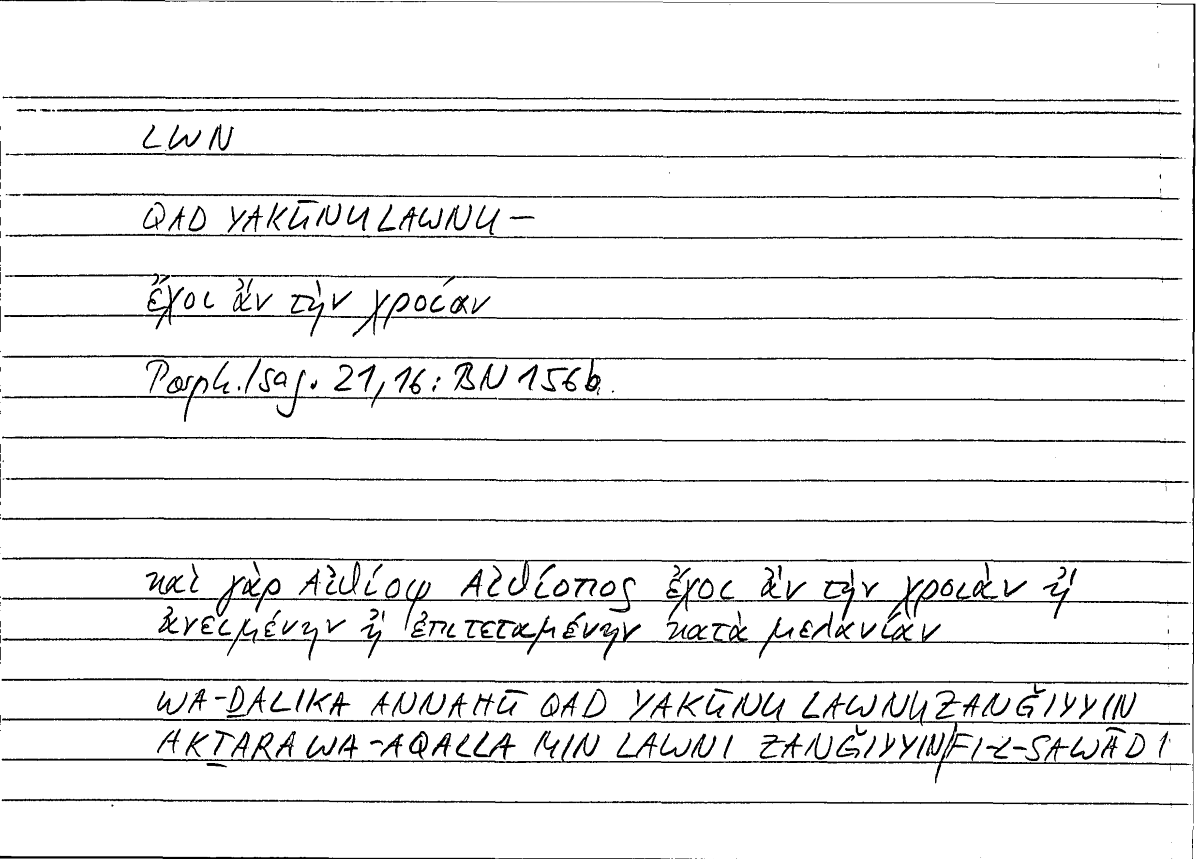 LWN
QAD YAKŪNU LAWNU —
ἔχοι ἂν τὴν χροίαν
Porph. Isag. 21,16: BN 156b.
καὶ γὰρ Αἰθίοψ Αἰθίοπος ἔχοι ἂν τὴν χροιὰν ἢ
ἀνειμένην ἢ ἐπιτεταμένην κατὰ μελανίαν
WA-ḎALIKA ANNAHŪ QAD YAKŪNU LAWNU ZANǦIYYIN
AKṮARA WA-AQALLA MIN LAWNI ZANǦIYYIN/FI-L-SAWĀDI